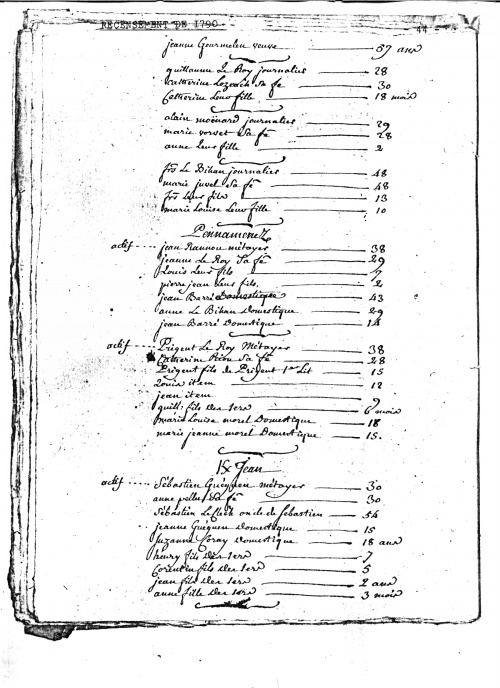 RECENSEMENT DE 1790 44
jeanne Gourmelen veuve 57 ans
guillaume Le Roy journalier 28
Catherine Lozeach Sa fe 30
Catherine leur fille 18 mois
alain moënard journalier 29
marie vorvet Sa fe 28
anne leur fille 2
frs Le Bihan journalier 48
marie juvel Sa fe 48
frs leur fils 13
marie Louise leur fille 10
Pennamenez
actif jean Rannou métayer 38
jeanne Le Roy Sa fe 29
Louis leur fils 7
pierre jean leur fils. 2
jean Barré Domestique 43
anne Le Bihan Domestique 29
jean Barré Domestique 14
actif Prigent Le Roy Métayer 38
Catherine Sa fe 28
Prigent fils de Prigent 1er Lit 15
Louis item 12
jean item 7
guill: fils Der 1ers 6 mois
marie Louise morel Domestique 18
marie jeanne morel Domestique 15.
St Jean
actif Sébastien Guéguen métayer 30
anne Sa fe 30
Sébastien Le fleih oncle de Sébastien 54
jeanne Guéguen Domestique 15
Suzanne Domestique 18 ans
henry fils Der 1ers 7
Corentin fils Der 1ers 5
jean fils Der 1ers 2 ans
anne fille Der 1ers 3 mois